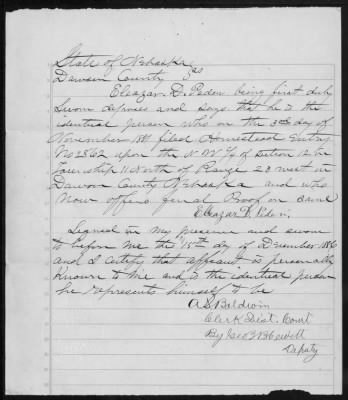 State of Nebraska
Dawson County } SS
Eleazar D. Peden being first duly
sworn deposes and says that he is the
identical person who on the 3rd day of
November 1881 filed Homestead Entry
No 2862 upon the N.W. 1/4 of Section 12 in
Township 11 North of Range 23 west in
Dawson County Nebraska and who
now offers final Proof on same
Eleazar D. Peden.
Signed in my presence and sworn
to before me the 15th day of December 1886
and I certify that affiant is personally
known to me and is the identical person
he represents himself to be
A S Baldwin
Clerk Dist. Court
By Geo B Hewett
Deputy